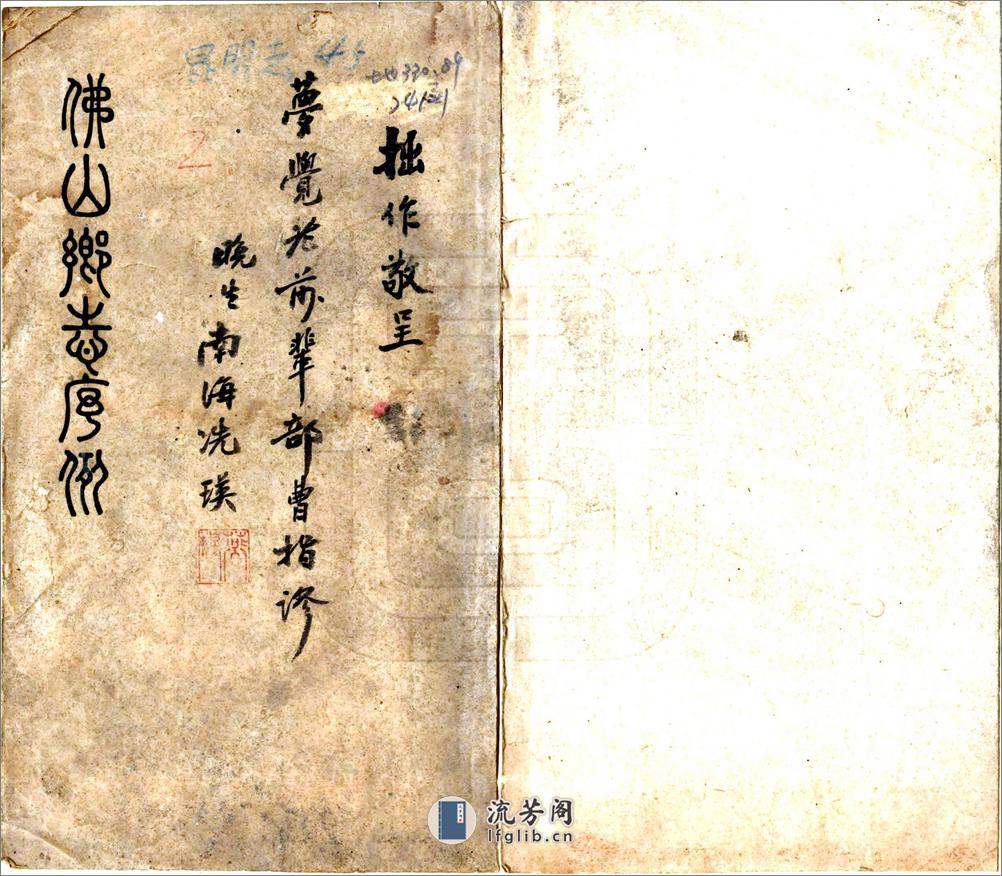 拙作敬呈
夢覺老前輩部曹指謬
晚生南海冼瑛
佛山鄉志序例
地330.89
2
流芳阁
lfglib.cn